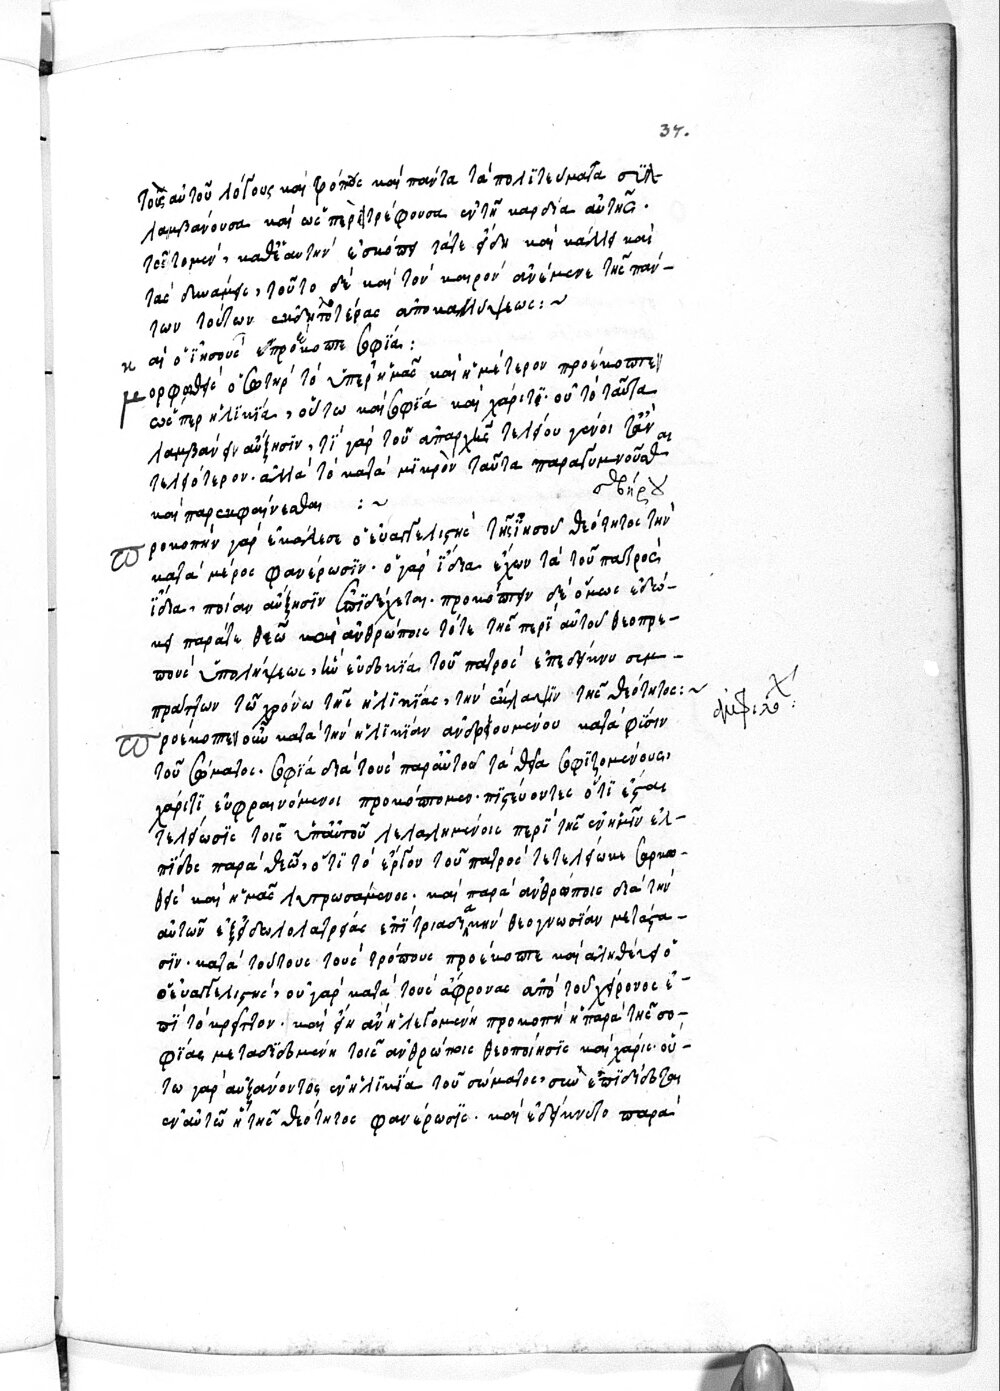 37.
τοὺς αὐτοῦ λόγους καὶ τρόπους καὶ πάντα τὰ πολιτεύματα συλ-
λαμβάνουσα καὶ ὥσπερ ἐντρέφουσα ἐν τῇ καρδίᾳ αὐτῆς.
καθ' ἑαυτὴν ἐσκόπει τά τε ἤδη καὶ
τὰς δυνάμεις, τοῦτο δὲ καὶ τὸν καιρὸν ἀνέμενε τῆς πάν-
των τούτων ἐκδηλοτέρας ἀποκαλύψεως:~
καὶ ὁ ἰησοῦς προέκοπτε σοφίᾳ:
μορφωθεὶς ὁ σωτὴρ τὸ ὑπὲρ ἡμᾶς καὶ ἡμέτερον προέκοπτεν
ὥσπερ ἡλικίᾳ, οὕτω καὶ σοφίᾳ καὶ χάριτι. οὐ τὸ ταῦτα
λαμβάνειν αὔξησιν, τί γὰρ τοῦ ἀπαρχῆς τελείου γένοιτ' ἂν
τελεώτερον. ἀλλὰ τὸ κατὰ μικρὸν ταῦτα παραγυμνοῦσθαι
καὶ παρεκφαίνεσθαι :~
σευήρου
προκοπὴν γὰρ ἐκάλεσε ὁ εὐαγγελιστὴς τῆς ἰησοῦ θεότητος τὴν
κατὰ μέρος φανέρωσιν. ὁ γὰρ ἴδια ἔχων τὰ τοῦ πατρὸς
ἴδια, ποίαν αὔξησιν ἐπιδέχεται. προκόπτειν δὲ ὅμως ἐδό-
κει παρά τε θεῷ καὶ ἀνθρώποις τότε τῆς περὶ αὐτοῦ θεοπρε-
ποῦς ὑπολήψεως, ἐν εὐδοκίᾳ τοῦ πατρὸς ἐπεδείκνυ συμ-
πράττων τῷ χρόνῳ τῆς ἡλικίας, τὴν ἔκλαμψιν τῆς θεότητος:~
ἀμφιλοχ:
προέκοπτεν οὖν κατὰ τὴν ἡλικίαν ἀνδρουμένου κατὰ φύσιν
τοῦ σώματος. σοφίᾳ διὰ τοὺς παρ' αὐτοῦ τὰ θεῖα σοφιζομένους,
χάριτι εὐφραινόμενοι προκόπτομεν. πιστεύοντες ὅτι ἔσται
τελείωσις τοῖς ὑπ' αὐτοῦ λελαλημένοις περὶ τῆς ἐν ἡμῖν ἐλ-
πίδος παρὰ θεῷ, ὅτι τὸ ἔργον τοῦ πατρὸς τετελείωκε σαρκω-
θεὶς καὶ ἡμᾶς λυτρωσάμενος. καὶ παρὰ ἀνθρώποις διὰ τὴν
αὐτῶν ἐξ εἰδωλολατρείας ἐπὶ τριαδικὴν θεογνωσίαν μετάστα-
σιν. κατὰ τούτους τοὺς τρόπους προέκοπτε καὶ ἀληθεύει ὁ
ὁ εὐαγγελιστής, οὐ γὰρ κατὰ τοὺς ἄφρονας ἀπὸ τοῦ χείρονος ἐ-
πὶ τὸ κρεῖττον. καὶ εἴη ἂν ἡ λεγομένη προκοπὴ ἡ παρὰ τῆς σο-
φίας μεταδιδομένη τοῖς ἀνθρώποις θεοποίησις καὶ χάρις. οὕ-
τω γὰρ αὐξάνοντος ἐν ἡλικίᾳ τοῦ σώματος, συνεπιδίδοται
ἐν αὐτῷ ἡ τῆς θεότητος φανέρωσις. καὶ ἐδείκνυτο παρὰ